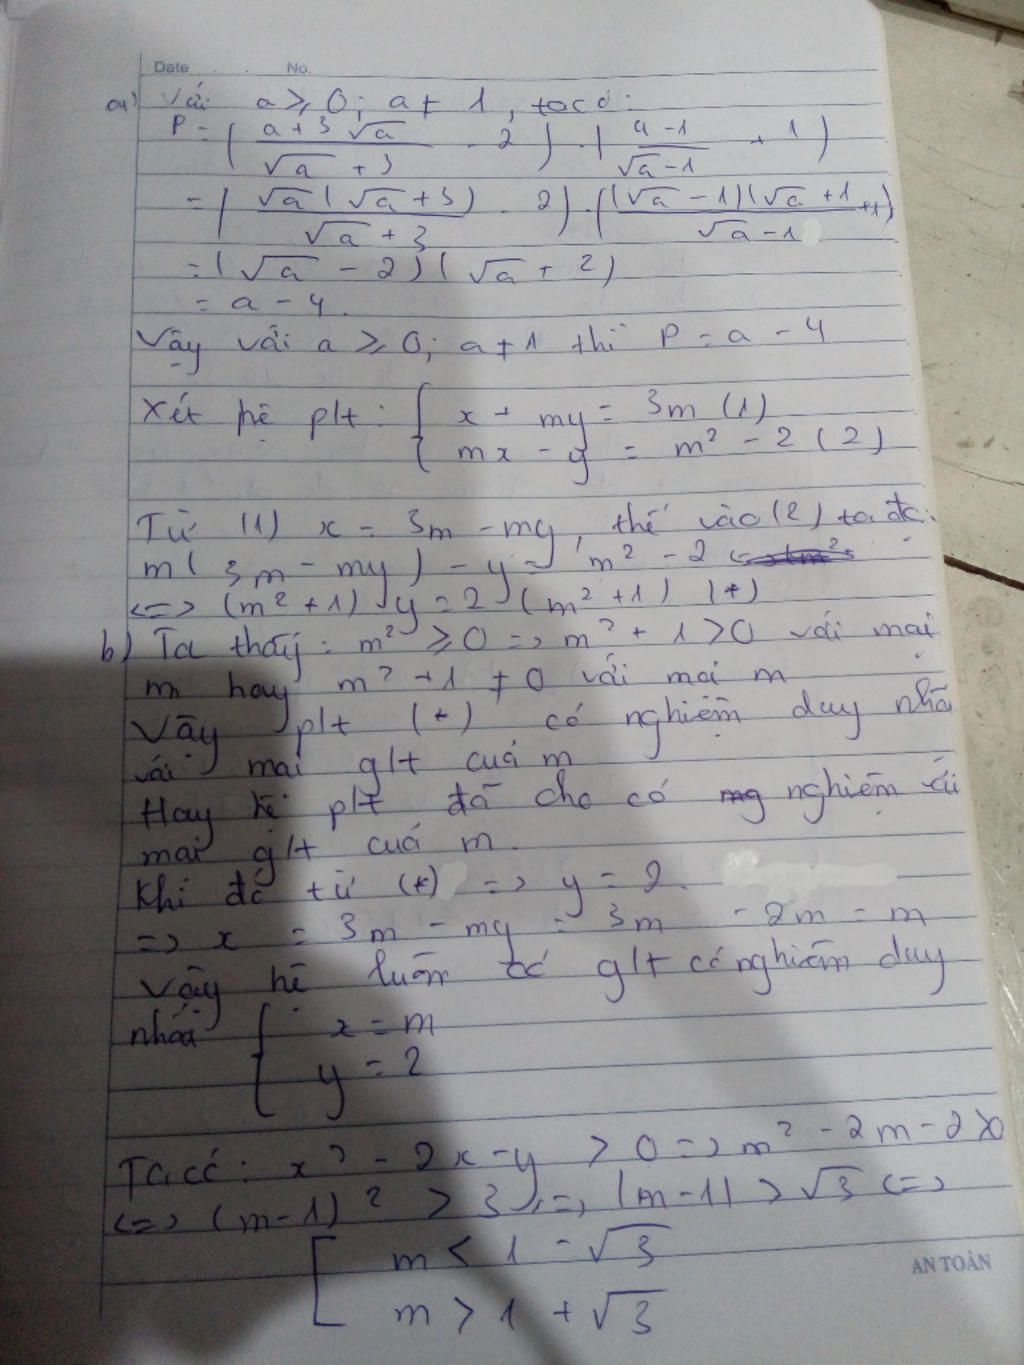 Date No.
a) Với a ≥ 0; a ≠ 1, ta có:
P = ( (a + 3√a)/(√a + 3) - 2 ) . ( (a - 1)/(√a - 1) + 1 )
= ( √a(√a + 3)/(√a + 3) - 2 ) . ( (√a - 1)(√a + 1)/(√a - 1) + 1 )
= (√a - 2)(√a + 2)
= a - 4.
Vậy với a ≥ 0; a ≠ 1 thì P = a - 4
Xét hệ pht: { x + my = 3m (1)
mx - y = m² - 2 (2)
Từ (1) x = 3m - my, thế vào (2) ta đc:
m(3m - my) - y = m² - 2
<=> (m² + 1) y = 2 (m² + 1) (*)
b) Ta thấy: m² ≥ 0 => m² + 1 > 0 với mọi
m hay m² + 1 ≠ 0 với mọi m
Vậy pht (*) có nghiệm duy nhấ
với mọi glt của m
Hay hệ pht đã cho có nghiệm với
mọi glt của m.
Khi đó từ (*) => y = 2.
=> x = 3m - my = 3m - 2m = m
Vậy hệ luôn có glt có nghiệm duy
nhất { x = m
y = 2
Ta có: x² - 2x - y > 0 => m² - 2m - 2 > 0
<=> (m - 1)² > 3 <=> |m - 1| > √3 <=>
[ m < 1 - √3
m > 1 + √3
AN TOÀN